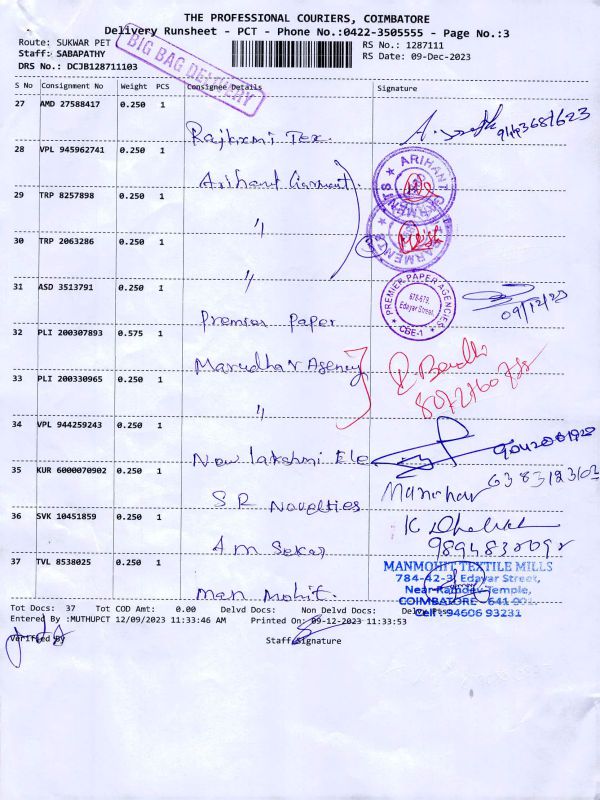 THE PROFESSIONAL COURIERS, COIMBATORE
Delivery Runsheet - PCT - Phone No.:0422-3505555 - Page No.:3
Route: SUKWAR PET
RS No.: 1287111
Staff: SABAPATHY
RS Date: 09-Dec-2023
DRS No.: DCJB128711103
BIG BAG DELIVERY
S No Consignment No Weight PCS Consignee Details Signature
27 AMD 27588417 0.250 1
Tex.
28 VPL 945962741 0.250 1
Arihant Garment.
ARIHANT GARMENTS
29 TRP 8257898 0.250 1
"
30 TRP 2063286 0.250 1
"
GARMENTS
31 ASD 3513791 0.250 1
Premier Paper
PREMIER PAPER AGENCIES
678-679,
Edayar Street,
CBE-1
09/12/23
32 PLI 200307893 0.575 1
Marudhar Agency
33 PLI 200330965 0.250 1
"
34 VPL 944259243 0.250 1
New lakshmi Ele
35 KUR 6000070902 0.250 1
S R Novelties
Manohar
36 SVK 10451859 0.250 1
A m Sekar
37 TVL 8538025 0.250 1
man mohit.
MANMOHIT TEXTILE MILLS
784-42-3, Edayar Street,
Near Ramdev Temple,
COIMBATORE - 641 001.
Cell: 94606 93231
Tot Docs: 37 Tot COD Amt: 0.00 Delvd Docs: Non_Delvd Docs:
Entered By :MUTHUPCT 12/09/2023 11:33:46 AM Printed On: 09-12-2023 11:33:53
Verified By
Staff Signature